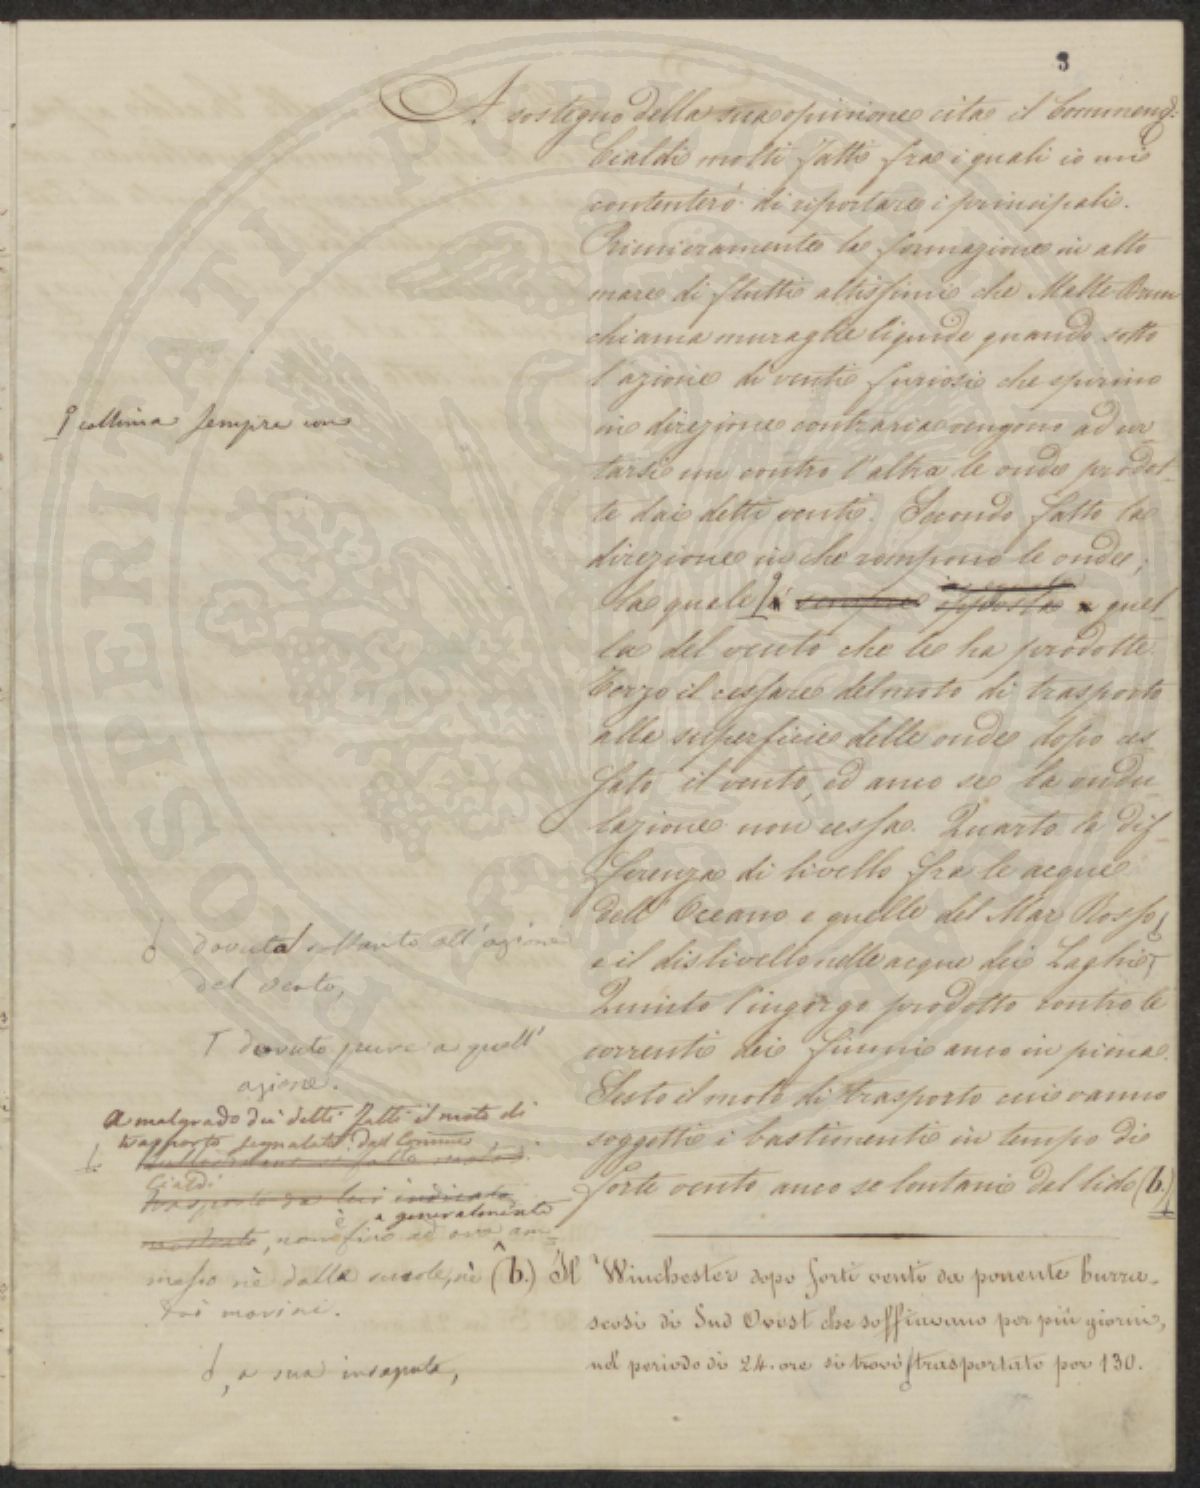 3
A sostegno della sua opinione cita il Commend:
Cialdi molti fatti fra i quali io mi
contenterò di riportare i principali.
Primieramente la formazione in alto
mare di flutti altissimi che Malte-Brun
chiama muraglie liquide quando sotto
l'azione di venti furiosi che spirino
in direzione contraria vengono ad ur-
tarsi un contro l'altra le onde prodot-
te dai detti venti. Secondo fatto la
direzione in che rompono le onde,
la quale è sempre opposta a quel-
la del vento che le ha prodotte.
Terzo il cessare del moto di trasporto
alla superficie delle onde dopo ces-
sato il vento, ed anco se la ondu-
lazione non cessa. Quarto la dif-
ferenza di livello fra le acque
dell'Oceano e quelle del Mar Rosso
e il dislivello nelle acque dei Laghi
Quinto l'ingorgo prodotto contro le
correnti dei fiumi anco in piena.
Sesto il moto di trasporto cui vanno
soggetti i bastimenti in tempo di
forte vento anco se lontani dal lido (b.)
collima sempre con
dovuta soltanto all'azione
del vento,
T dovuto pure a quell'
azione.
A malgrado dei detti fatti il moto di
trasporto segnalato dal Comm.
Cialdi
trasporto da lui indicato
è generalmente
mostrato, non fino ad ora am-
messo nè dalle scuole, nè
dai marini.
, a sua insaputa,
(b.) Il Winchester dopo forti venti da ponente burra-
scosi di Sud Ovest che soffiavano per più giorni,
nel periodo di 24. ore si trovò trasportato per 130.
PROSPERITATI PUBLICAE